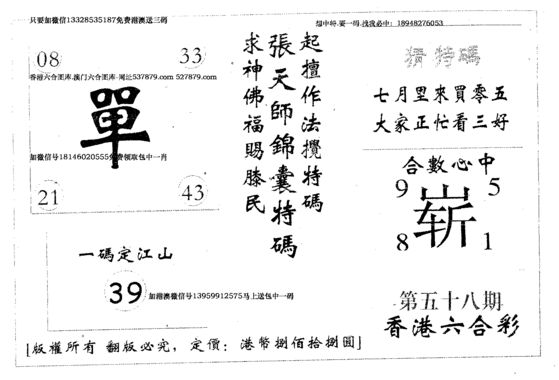 只要加微信13328535187免费港澳送三码
08 33
香港六合图库.澳门六合图库-网址537879.com 527879.com
單
加微信号18146020555免费领取包中一肖
21 43
一碼定江山
39
加港澳微信号13959912575马上送包中一码
起擅作法攪特碼
張天師錦囊特碼
求神佛福賜滕民
想中特.要一码.找我必中：18948276053
猜特碼
七月里來買零五
大家正忙看三好
合數心中
9 5
崭
8 1
第五十八期
香港六合彩
[版權所有 翻版必究，定價：港幣捌佰拾捌圓]